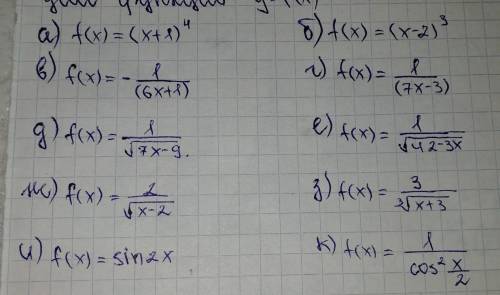 а) f(x) = (x+1)⁴ б) f(x) = (x-2)³
в) f(x) = - 1/(6x+1) г) f(x) = 1/(7x-3)
д) f(x) = 1/√(7x-9). е) f(x) = 1/√(42-3x)
ж) f(x) = 2/√(x-2) з) f(x) = 3/∛(x+3)
и) f(x) = sin2x к) f(x) = 1/cos² x/2